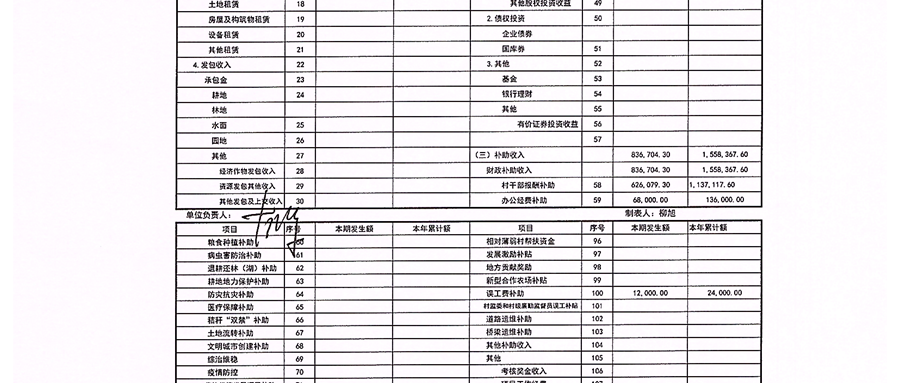 土地租赁 18 其他股权投资收益 49
房屋及构筑物租赁 19 2.债权投资 50
设备租赁 20 企业债券
其他租赁 21 国库券 51
4.发包收入 22 3.其他 52
承包金 23 基金 53
耕地 24 银行理财 54
林地 其他 55
水面 25 有价证券投资收益 56
园地 26 57
其他 27 (三)补助收入 836,704.30 1,558,367.60
经济作物发包收入 28 财政补助收入 836,704.30 1,558,367.60
资源发包其他收入 29 村干部报酬补助 58 626,079.30 1,137,117.60
其他发包及上交收入 30 办公经费补助 59 68,000.00 136,000.00
单位负责人: 制表人:柳旭
项目 序号 本期发生额 本年累计额 项目 序号 本期发生额 本年累计额
粮食种植补助 60 相对薄弱村帮扶资金 96
病虫害防治补助 61 发展激励补贴 97
退耕还林(湖)补助 62 地方贡献奖励 98
耕地地力保护补助 63 新型合作农场补贴 99
防灾抗灾补助 64 误工费补助 100 12,000.00 24,000.00
医疗保障补助 65 村监委和村级廉勤监督员误工补贴 101
秸秆“双禁”补助 66 道路运维补助 102
土地流转补助 67 桥梁运维补助 103
文明城市创建补助 68 其他补助收入 104
综治维稳 69 其他 105
疫情防控 70 考核奖金收入 106